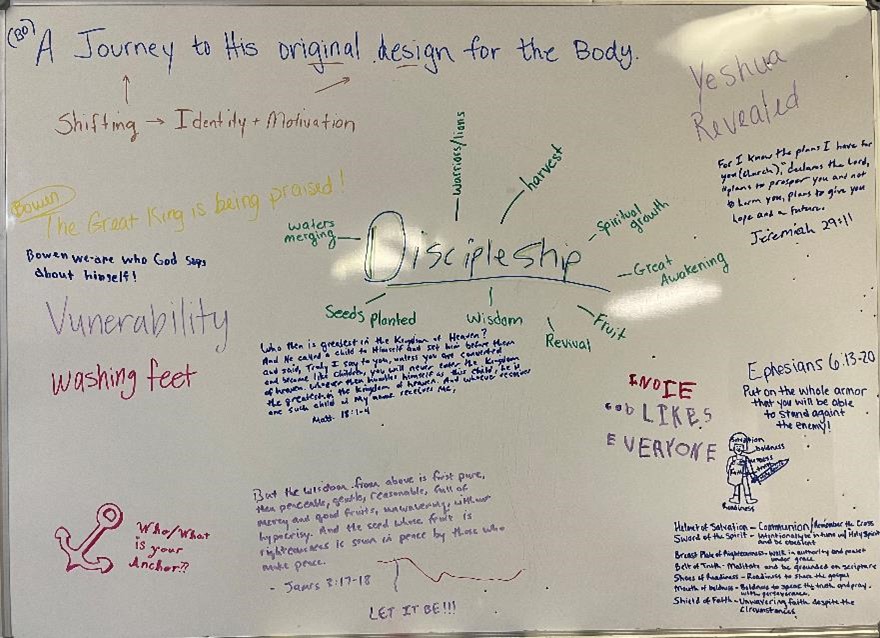 (BO)
A Journey to His original design for the Body.
Shifting → Identity + Motivation
Yeshua
Revealed
For I know the plans I have for
you (church)," declares the Lord,
"plans to prosper you and not
to harm you, plans to give you
hope and a future.
Jeremiah 29:11
Bowen
The Great King is being praised!
Bowen we are who God says
about himself!
Vunerability
washing feet
Discipleship
waters
merging
Warriors/lions
harvest
Spiritual
growth
Great
Awakening
Fruit
Revival
Wisdom
Seeds planted
Who then is greatest in the Kingdom of Heaven?
And He called a child to Himself and set him before them
and said, Truly I say to you, unless you are converted
and become like children, you will never enter the Kingdom
of heaven. Whoever then humbles himself as this child, he is
the greatest in the kingdom of heaven. And whoever receives
one such child in My name receives Me,
Matt. 18:1-4
GOD LIKES
EVERYONE
Ephesians 6:13-20
Put on the whole armor
that you will be able
to stand againt
the enemy!
Salvation
boldness
truth
Readiness
Helmet of Salvation - Communion/Remember the Cross
Sword of the Spirit - Intentionally be in tune w/ Holy Spirit
and be obedient
Breast Plate of Righteousness - Walk in authority and power
under grace
Belt of Truth - Meditate and be grounded on scripture
Shoes of Readiness - Readiness to share the gospel
Mouth of boldness - Boldness to speak the truth and pray
with perseverance.
Shield of Faith - Unwavering faith despite the
circumstances
Who/What
is your
Anchor??
But the wisdom from above is first pure,
then peaceable, gentle, reasonable, full of
mercy and good fruits, unwavering, without
hypocrisy. And the seed whose fruit is
righteousness is sown in peace by those who
make peace.
- James 3:17-18
LET IT BE!!!